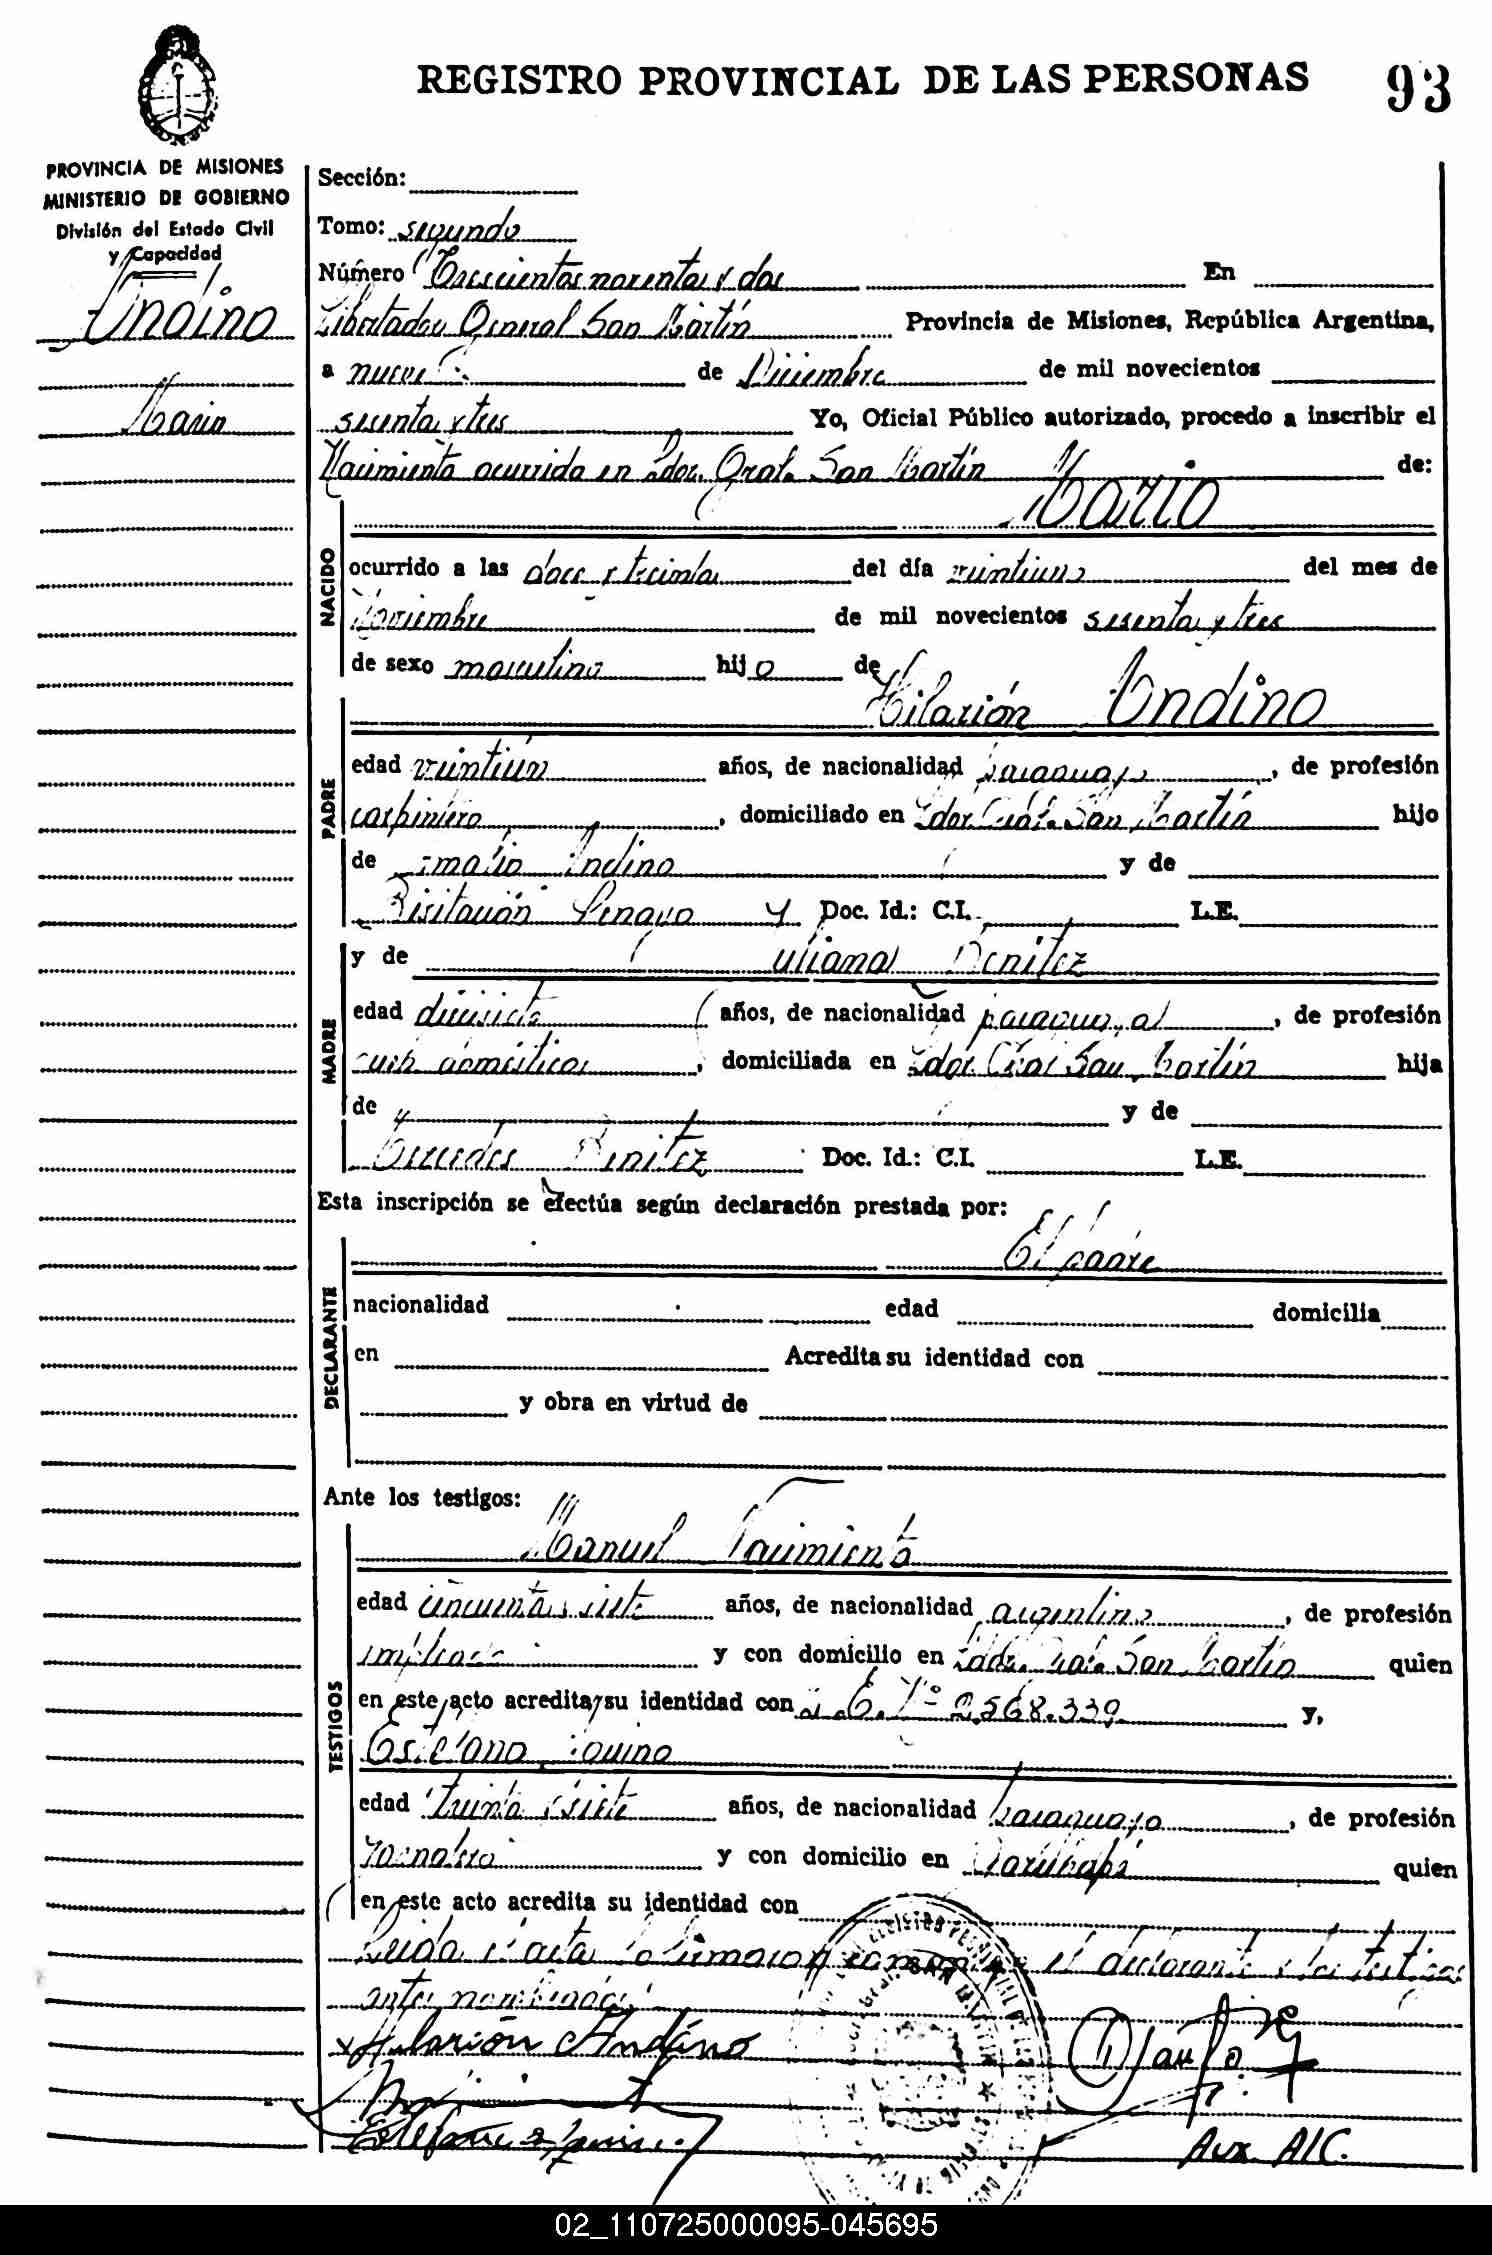 REGISTRO PROVINCIAL DE LAS PERSONAS 93
PROVINCIA DE MISIONES
MINISTERIO DE GOBIERNO
División del Estado Civil
y Capacidad
Andino
Mario
Sección:
Tomo: segundo
Número Trescientos noventa y dos En
Libertador General San Martín Provincia de Misiones, República Argentina,
a nueve de Diciembre de mil novecientos
sesenta y tres Yo, Oficial Público autorizado, procedo a inscribir el
Nacimiento ocurrido en Ldor. Gral. San Martín de:
Mario
NACIDO
ocurrido a las doce y treinta del día veintiuno del mes de
Noviembre de mil novecientos sesenta y tres
de sexo masculino hijo de
Hilarión Andino
PADRE
edad veintiún años, de nacionalidad paraguayo, de profesión
carpintero, domiciliado en Ldor. Gral. San Martín hijo
de Andino y de
Visitación y Doc. Id.: C.I. L.E.
MADRE
y de Juliana Benitez
edad diecisiete años, de nacionalidad paraguaya, de profesión
domésticos, domiciliada en Ldor. Gral. San Martín hija
de y de
Mercedes Benitez Doc. Id.: C.I. L.E.
Esta inscripción se efectúa según declaración prestada por:
El padre
DECLARANTE
nacionalidad edad domicilia
en Acredita su identidad con
y obra en virtud de
Ante los testigos:
Manuel
TESTIGOS
edad cincuenta y siete años, de nacionalidad argentino, de profesión
empleado y con domicilio en Ldor. Gral. San Martín quien
en este acto acredita su identidad con L.E. Nº 2.568.339 y,
Estefano
edad Treinta y siete años, de nacionalidad paraguayo, de profesión
Jornalero y con domicilio en quien
en este acto acredita su identidad con
Leida el acta la firmaron conmigo el declarante y los testigos
antes nombrados
x Hilarión Andino
Aux. A/C.
02_110725000095-045695